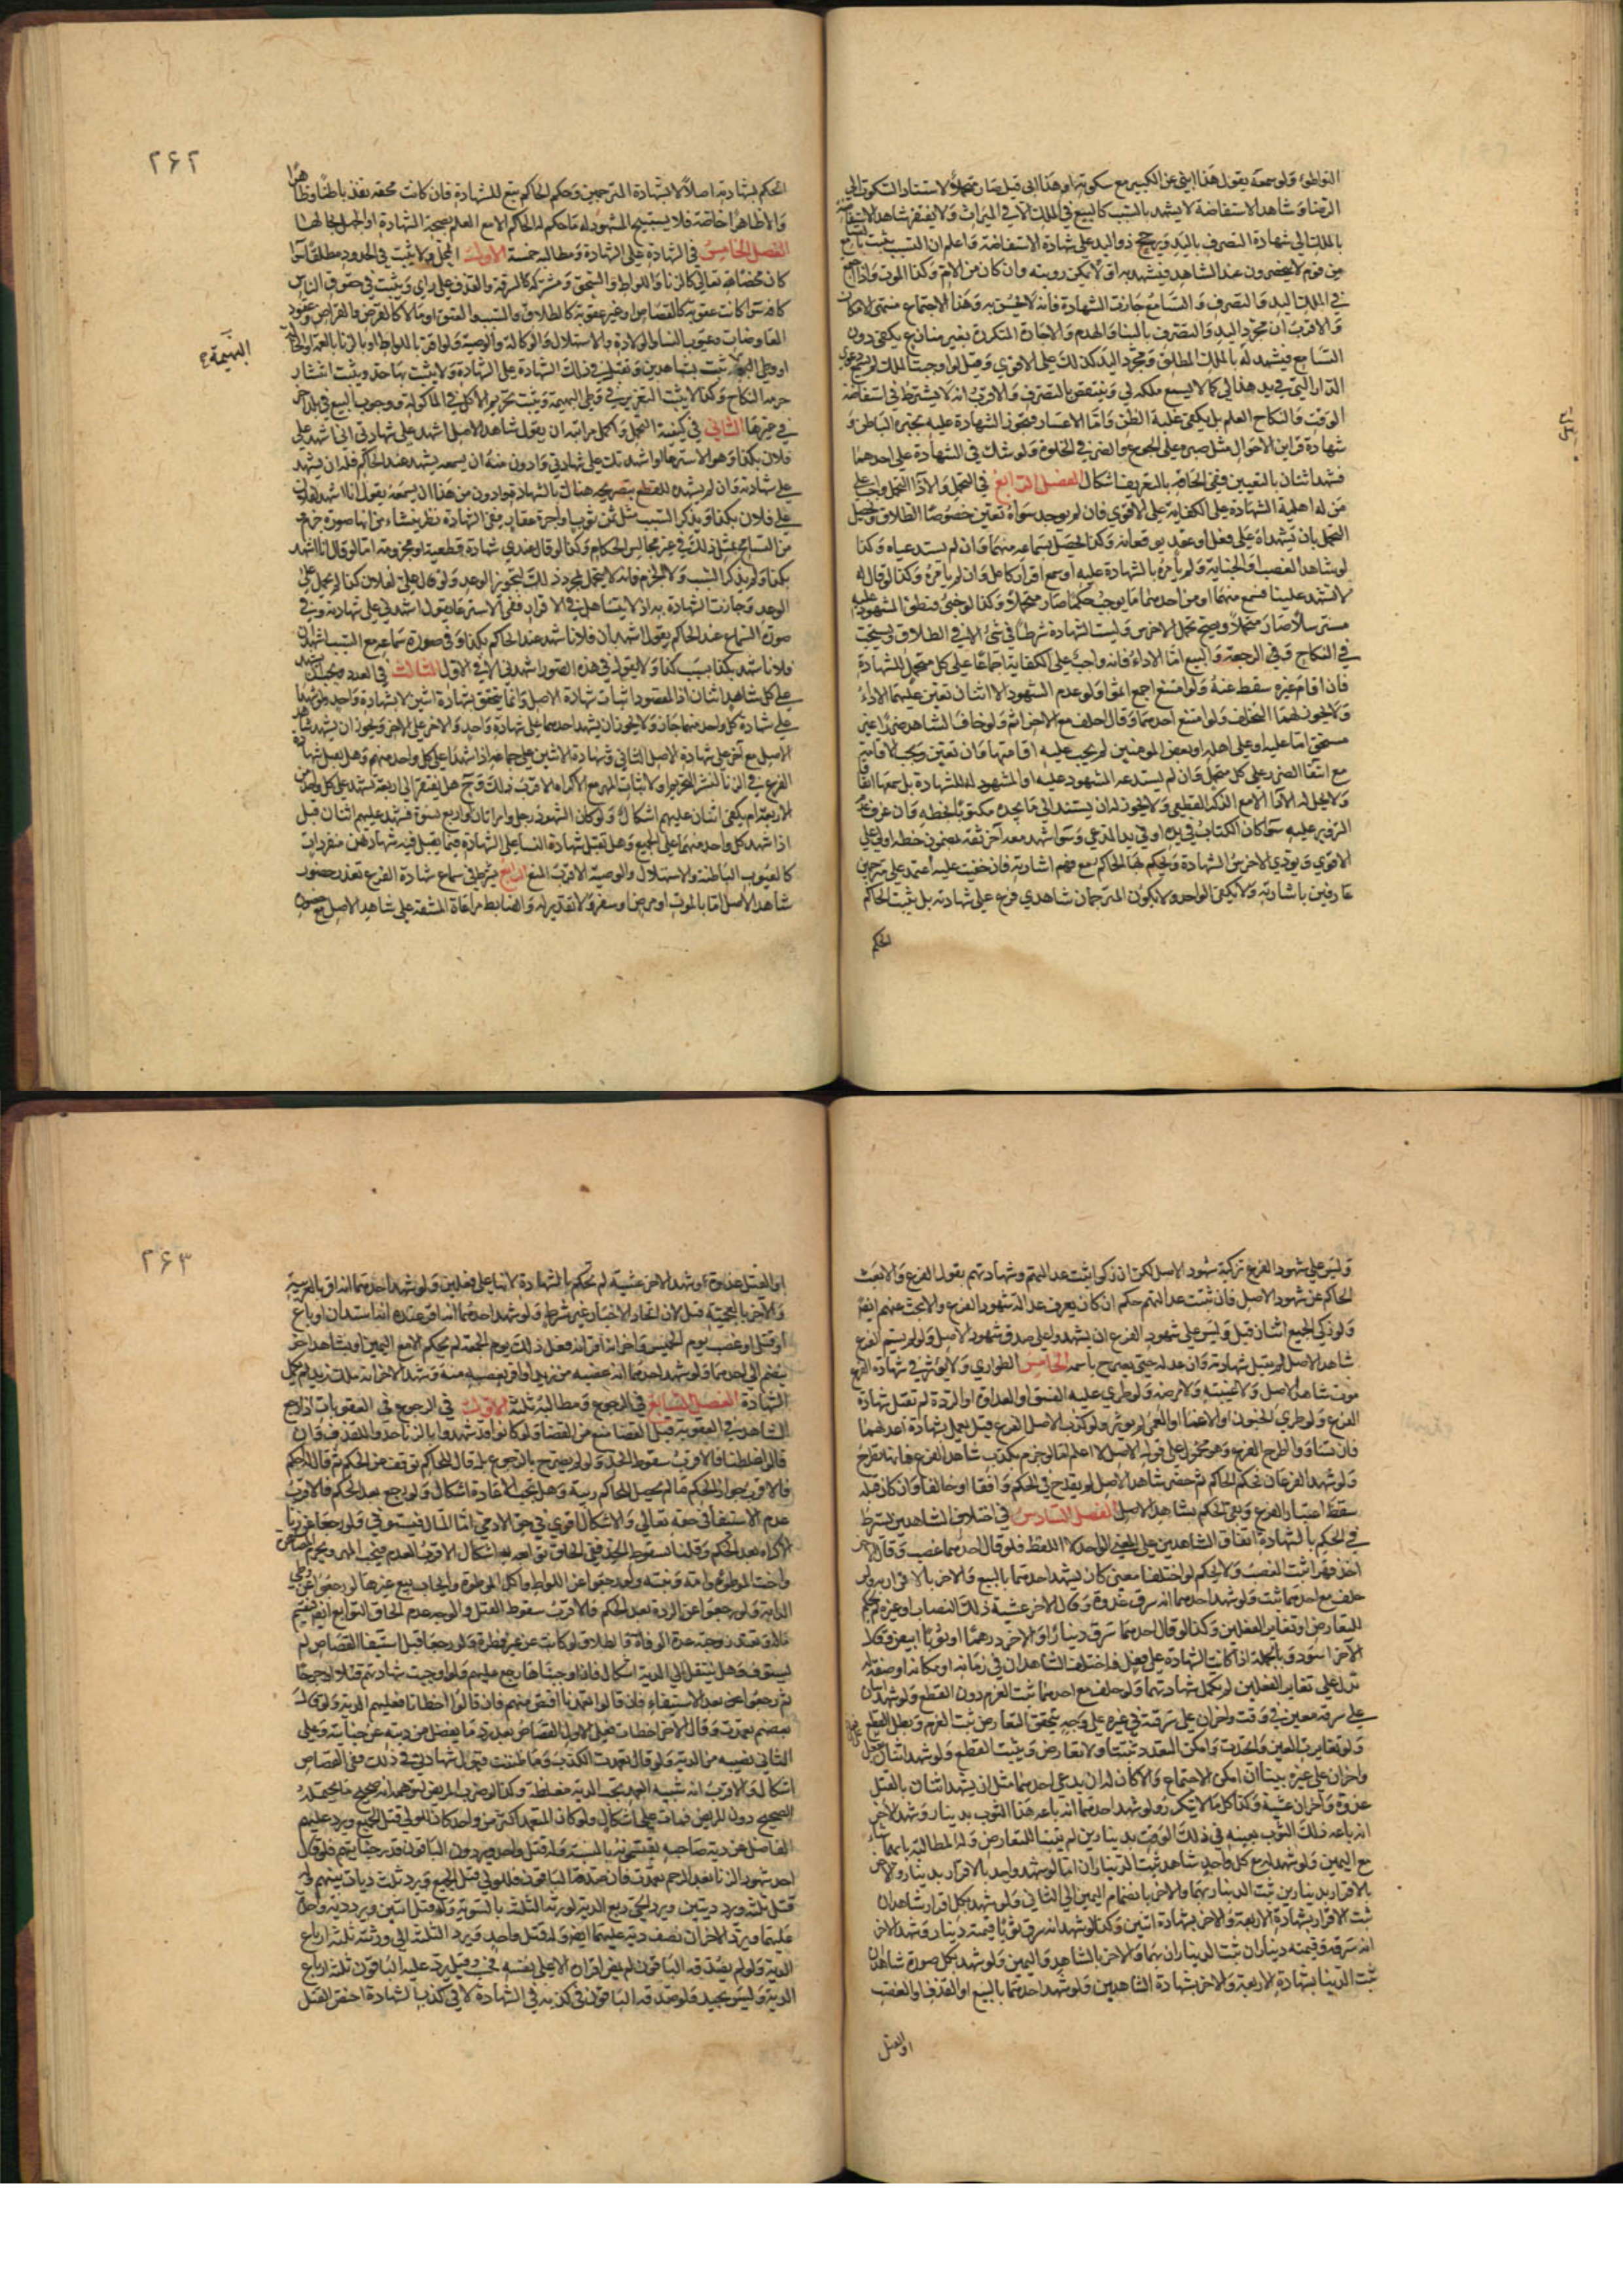 التواطؤ ولو سمعه يقول هذا ابني عن الكبير مع سكوته او هذا ابي قيل صار متحملاً لاستناد السكوت الى
الرضا وشاهد الاستفاضة لا يشهد بالسبب كالبيع في الملك الا في الميراث ولا يفتقر شاهد الاستفاضة
بالملك الى شهادة التصرف باليد ويرجح ذو اليد على شهادة الاستفاضة واعلم ان النسب يثبت بتسامع
من قوم لا ينحصرون عند الشاهد فيشهد به اذ لا يمكن رويته وان كان من الام وكذا الموت واذا اجتمع
في الملك اليد والتصرف والتسامع جازت الشهادة فانه لا يحس به وهذا الاجتماع منتهى الامكان
والاقرب ان مجرد اليد والتصرف بالبنا والهدم والاجارة المتكررة بغير منازع يكفي دون
التسامع فيشهد له بالملك المطلق ومجرد اليد كذلك على الاقوى وقيل لو اوجبت الملك لم تسمع دعوى
الدار التي في يد هذا لي كما لا يسمع ملكه لي وينتقض بالتصرف والاقرب انه لا يشترط في استفاضة
الوقف والنكاح العلم بل يكفي غلبة الظن واما الاعسار فيجوز الشهادة عليه بخبرة الباطن و
شهادة قراين الاحوال مثل صبره على الجوع والضر في الخلوة ولو شك في الشهادة على احدهما
فشهد اثنان بالتعيين ففي الحاقه بالتعريف اشكال الفصل الرابع في التحمل والاداء التحمل واجب على
من له اهلية الشهادة على الكفاية على الاقوى فان لم يوجد سواه تعين خصوصا الطلاق ويحصل
التحمل بان يشهداه على فعل او عقد يوقعانه وكذا يحصل بسماعه منهما وان لم يستدعياه وكذا
لو شاهد الغصب والجناية ولم يأمره بالشهادة عليه او سمع اقرار كامل وان لم يأمره وكذا لو قال له
لا تشهد علينا فسمع منهما او من احدهما ما يوجب حكما صار متحملا وكذا لو خبئ فنطق المشهود عليه
مسترسلا صار متحملا ويصح تحمل الاخرس وليست الشهادة شرطا في شئ الا في الطلاق ويستحب
في النكاح وفي الرجعة والبيع اما الاداء فانه واجب على الكفاية اجماعا على كل متحمل للشهادة
فان اقام غيره سقط عنه ولو امتنع اجمع اثموا ولو عدم الشهود الا اثنان تعين عليهما الاداء
ولا يجوز لهما التخلف ولو امتنع احدهما وقال احلف مع الاخر اثم ولو خاف الشاهد ضررا غير
مستحق اما عليه او على اهله او بعض المومنين لم يجب عليه اقامتها وان تعين ويجب الاقامة
مع انتفا الضرر على كل متحمل وان لم يستدعه المشهود عليه او المشهود له للشهادة بل سمعها اتفاقا
ولا يحل له الاداء الا مع الذكر القطعي ولا يجوز له ان يستند الى ما يجده مكتوبا بخطه وان عرف عدم
التزوير عليه سوا كان الكتاب في يده او في يد المدعي وسوا شهد معه آخر ثقة بمضمون خطه او لا على
الاقوى ويؤدي الاخرس الشهادة ويحكم بها الحاكم مع فهم اشارته فان خفيت عليه اعتمد على مترجمين
عارفين باشارته ولا يكفي الواحد ولا يكون المترجمان شاهدي فرع على شهادته بل يثبت الحاكم
الحكم
٢۶٢
الحكم بشهادته اصلا لا بشهادة المترجمين وحكم الحاكم تبع للشهادة فان كانت محقه نفذ باطنا وظاهرا
والا ظاهرا خاصة فلا يستبيح المشهود له ما حكم له الحاكم الا مع العلم بصحة الشهادة او الجهل بحالها
الفصل الخامس في الشهادة على الشهادة ومطالبه خمسة الاول المحل ولا يثبت في الحدود مطلقا سوا
كان محضا لله تعالى كالزنا واللواط والسحق ومشتركة كالسرقة والقذف على راي ويثبت في حقوق الناس
كافة سوا كانت عقوبة كالقصاص او غير عقوبة كالطلاق والنسب والعتق او مالا كالقرض والقراض وعقود
المعاوضات وعيوب النساء والولادة والاستهلال والوكالة والوصية ولو اقر باللواط او بالزنا بالعمة او الخالة
او وطي البهيمة ثبت بشاهدين وتقبل في ذلك الشهادة على الشهادة ولا يثبت بها حد ويثبت انتشار
حرمة النكاح وكذا لا يثبت التعزير في وطي البهيمة ويثبت تحريم الاكل في الماكولة ووجوب البيع في بلد اخر
في غيرها الثاني في كيفية التحمل واكمل مراتبه ان يقول شاهد الاصل اشهد على شهادتي اني اشهد على
فلان بكذا وهو الاسترعا او اشهدتك على شهادتي وادون منه ان يسمعه يشهد عند الحاكم فله ان يشهد
على شهادته وان لم يشهده للقطع بتصريحه هناك بالشهادة وادون من هذا ان يسمعه يقول انا اشهد لفلان
على فلان بكذا ويذكر السبب مثل ثمن ثوب او اجرة عقار ففي الشهادة نظر ينشاء من انها صورة جزم
من التسامح بمثل ذلك في غير مجالس الحكام وكذا لو قال عندي شهادة قطعية او مجزومة اما لو قال انا اشهد
بكذا ولم يذكر السبب ولا الجزم فانه لا يتحمل لمجرد ذلك لتجويز الوعد ولو قال علي لفلان كذا لم يحمل على
الوعد وجازت الشهادة به اذ لا يتساهل في الاقرار ففي الاسترعا يقول اشهدني على شهادته وفي
صورة السماع عند الحاكم يقول اشهد ان فلانا شهد عند الحاكم بكذا وفي صورة سماعه مع السبب اشهد ان
فلانا شهد بكذا بسبب كذا ولا يقول في هذه الصور اشهدني الا في الاول الثالث في العدد ويجب ان يشهد
على كل شاهد اثنان اذ المقصود اثبات شهادة الاصل وانما يتحقق بشهادة اثنين لا بشهادة واحد ولو شهدا
على شهادة كل واحد منهما جاز ولا يجوز ان يشهد احدهما على شهادة واحد والاخر على الاخر ويجوز ان يشهد شاهد
الاصل مع آخر على شهادة الاصل الثاني وشهادة الاثنين على جماعة اذا شهدا على كل واحد منهم وهل يقبل شهادة
الفرع في الزنا لنشر التحريم او لاثبات المهر مع الاكراه الاقرب ذلك وح هل يفتقر الى اربعة تشهد على كل واحد من
الاربعة ام يكفي اثنان عليهم اشكال ولو كان الشهود رجل وامراتان او اربع نسوة فشهد عليهم اثنان قبل
اذا شهد كل واحد منهما على الجميع وهل تقبل شهادة النساء على الشهادة فيما يقبل فيه شهادتهن منفردات
كالعيوب الباطنة والاستهلال والوصية الاقرب المنع الرابع يشترط في سماع شهادة الفرع تعذر حضور
شاهد الاصل اما بالموت او مرض او سفر ولا تقدير له والضابط مراعاة المشقة على شاهد الاصل مع حضوره
البهيمة
وليس على شهود الفرع تزكية شهود الاصل لكن ان زكوا ثبت عدالتهم وشهادتهم بقول الفرع والا بحث
الحاكم عن شهود الاصل فان ثبتت عدالتهم حكم ان كان يعرف عدالة شهود الفرع والا بحث عنهم ايضا
ولو زكى الجميع اثنان قبل وليس على شهود الفرع ان يشهدوا على صدق شهود الاصل ولو لم يسم الفرع
شاهد الاصل لم يقبل شهادته وان عدله حتى يصرح باسمه الخامس الطواري ولا يؤثر في شهادة الفرع
موت شاهد الاصل ولا غيبته ولا مرضه ولو طرئ عليه الفسق او العداوة او الردة لم تقبل شهادة
الفرع ولو طرئ الجنون او الاغما او العمى لم يؤثر ولو كذب الاصل الفرع قيل يعمل بشهادة اعدلهما
فان تساويا اطرح الفرع وهو محمول على قول الاصل لا اعلم اما لو جزم بكذب شاهد الفرع فانها تطرح
ولو شهد الفرعان فحكم الحاكم ثم حضر شاهد الاصل لم يقدح في الحكم وافقا او خالفا وان كان قبله
سقط اعتبار الفرع وبقي الحكم بشاهد الاصل الفصل السادس في اختلاف الشاهدين يشترط
في الحكم بالشهادة اتفاق الشاهدين على المعنى الواحد لا اللفظ فلو قال احدهما غصب وقال الاخر
اخذ قهرا ثبت الغصب ولا يحكم لو اختلفا معنى كان يشهد احدهما بالبيع والاخر بالاقرار به ولو
حلف مع احدهما ثبت ولو شهد احدهما انه سرق غدوة وقال الاخر عشية ذلك النصاب او غيره لم يحكم
للتعارض او تغاير الفعلين وكذا لو قال احدهما سرق دينارا والاخر درهما او ثوبا ابيض وقال
الاخر اسود وبالجملة اذا كانت الشهادة على فعل فاختلف الشاهدان في زمانه او مكانه او صفة له
تدل على تغاير الفعلين لم تكمل شهادتهما ولو حلف مع احدهما ثبت الغرم دون القطع ولو شهد اثنان
على سرقة معين في وقت واخران على سرقته في غيره على وجه يتحقق التعارض ثبت الغرم وبطل القطع
ولو تغايرت العين او اتحدت وامكن التعدد ثبتتا ولا تعارض ويثبت القطع ولو شهد اثنان على فعل
واخران على غيره ثبتا ان امكن الاجتماع والا كان له ان يدعي احدهما مثل ان يشهد اثنان بالقتل
غدوة وآخران عشية وكذا كل ما لا يتكرر ولو شهد احدهما انه باعه هذا الثوب بدينار وشهد الاخر
انه باعه ذلك الثوب بعينه في ذلك الوقت بدينارين لم يثبتا للتعارض وله المطالبة بايهما شاء
مع اليمين ولو شهد مع كل واحد شاهد ثبت الديناران اما لو شهد واحد بالاقرار بدينار والاخر
بالاقرار بدينارين ثبت الدينار بهما والاخر بانضمام اليمين الى الثاني ولو شهد بكل اقرار شاهدان
ثبت الاقرار بشهادة الاربعة والاخر بشهادة اثنين وكذا لو شهد انه سرق ثوبا قيمته دينار وشهد الاخر
انه سرقه وقيمته ديناران ثبت الديناران بهما والاخر بالشاهد واليمين ولو شهد بكل صورة شاهدان
ثبت الدينار بشهادة الاربعة والاخر بشهادة الشاهدين ولو شهد احدهما بالبيع او القذف او الغصب
او القتل
٢۶٣
او القتل غدوة وشهد الاخر عشية لم يحكم بالشهادة لانها على فعلين ولو شهد احدهما انه اقر بالعربية
والاخر بالعجمية قبل لان اتحاد الاخبار غير شرط ولو شهد احدهما انه اقر عنده انه استدان او باع
او قتل او غصب يوم الخميس واخر انه اقر انه فعل ذلك يوم الجمعة لم يحكم الا مع اليمين او بشاهد اخر
ينضم الى احدهما ولو شهد احدهما انه غصبه من زيد او اقر بغصبه منه وشهد الاخر انه ملك زيد لم تكمل
الشهادة الفصل السابع في الرجوع ومطالبه ثلثة الاول في الرجوع في العقوبات اذا رجع
الشاهد في العقوبة قبل القضا منع من القضا ولو كانوا قد شهدوا بالزنا حدوا للقذف وان
قالوا غلطنا فالاقرب سقوط الحد ولو لم يصرح بالرجوع بل قال للحاكم توقف عن الحكم ثم قال له احكم
فالاقرب جواز الحكم ما لم يحصل للحاكم ريبة وهل تجب الاعادة اشكال ولو رجع بعد الحكم فالاقرب
عدم الاستيفا في حقه تعالى والاشكال اقوى في حق الادمي اما المال فيستوفى ولو رجعا عن زنا
الاكراه بعد الحكم وقلنا بسقوط الحد ففي الحاق توابعه به اشكال الاقرب العدم فيجب المهر ويحرم
واخت الموطوء وامه وبنته ولو رجعوا عن اللواط واكل الموطوءة وايجاب بيع غيرها لو رجعوا عن وطي
الدابة ولو رجعوا عن الردة بعد الحكم فالاقرب سقوط القتل والوجه عدم الحاق التوابع
وتعتد زوجته عدة الوفاة والطلاق لو كانت عن غير فطرة ولو رجعا قبل استيفا القصاص لم
يستوف وهل ينتقل الى الدية اشكال فان اوجبناها رجع عليهم ولو اوجبت شهادتهم قتلا او جرحا
ثم رجعوا عن بعد الاستيفاء فان قالوا تعمدنا اقتص منهم فان قالوا اخطانا فعليهم الدية ولو قال
بعضهم تعمدت وقال الاخر اخطات فعلى الاول القصاص بعد رد ما يفضل من ديته عن جنايته وعلى
الثاني نصيبه من الدية ولو قال تعمدت الكذب وما ظننت قبول شهادتي في ذلك ففي القصاص
اشكال والاقرب انه شبيه العمد يجب الدية مغلظة وكذا لو ضرب المريض لتوهمه انه صحيح ما يحتمله
الصحيح دون المريض فمات على اشكال ولو كان المتعمد اكثر من واحد كان للولي قتل الجميع ويرد عليهم
الفاضل عن دية صاحبه يقتسمونه بالنسبة وله قتل واحد ويرد الباقون قدر جنايتهم فلو قال
احد شهود الزنا بعد الرجم تعمدت فان صدقه الباقون فللولي قتل الجميع ويرد ثلث ديات بينهم وله
قتل ثلثة ويرد ديتين ويرد الحي ربع الدية لورثة الثلثة بالسوية وله قتل اثنين ويرد دية واحدة
عليهما ويرد الاخران نصف دية عليهما ايضا وله قتل واحد ويرد الثلثة الى ورثته ثلثة ارباع
الدية ولو لم يصدقه الباقون لم يمض اقراره الا على نفسه فحسب وقيل يرد عليه الباقون ثلثة ارباع
الدية وليس بجيد ولو صدقه الباقون في كذبه في الشهادة لا في كذب الشهادة اختص القتل